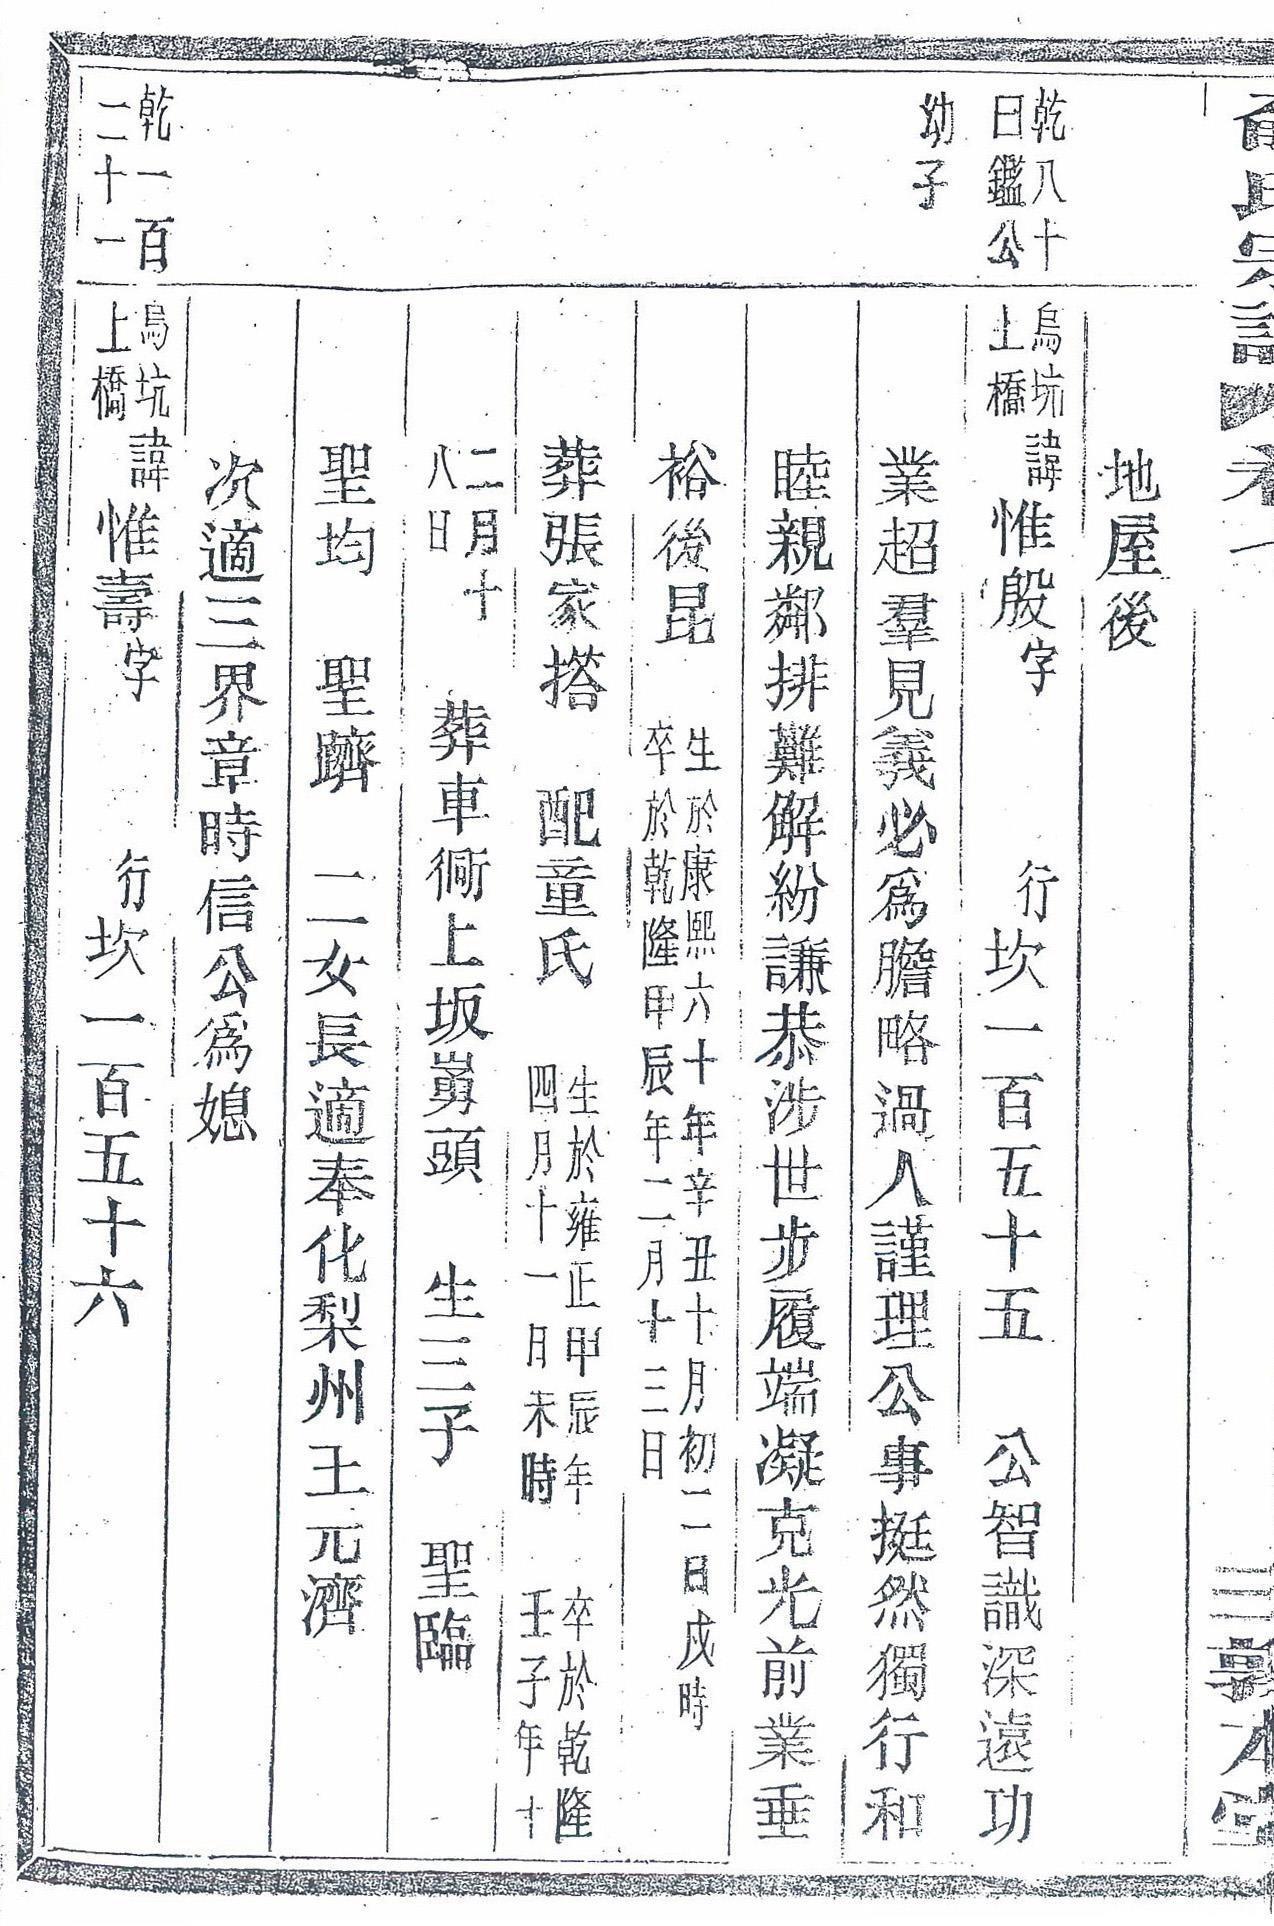 氏宗譜 卷一 三 敦本堂
地屋後
乾八十
曰鑑公
幼子
烏坑
上橋
諱惟殷字 行坎一百五十五 公智識深遠功
業超羣見義必爲膽略過人謹理公事挺然獨行和
睦親鄰排難解紛謙恭涉世步履端凝克光前業垂
裕後昆 生於康熙六十年辛丑十月初二日戌時
卒於乾隆甲辰年二月十三日
葬張家搭 配童氏 生於雍正甲辰年
四月十一日未時 卒於乾隆
壬子年十
二月十
八日 葬車衕上坂嵜頭 生三子 聖臨
聖均 聖躋 二女長適奉化梨州王元濟
次適三界章時信公爲媳
乾一百
二十一
烏坑
上橋
諱惟壽字 行坎一百五十六